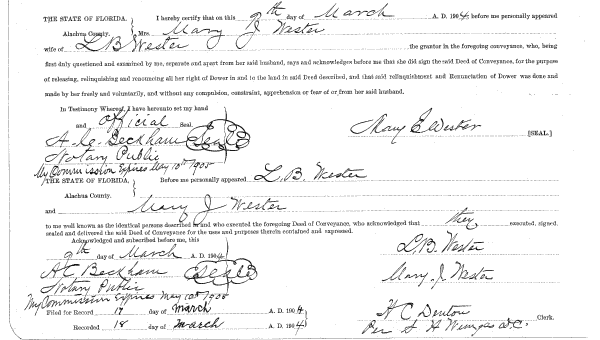 THE STATE OF FLORIDA. } I hereby certify that on this 9th day of March A. D. 1904, before me personally appeared
Alachua County. } Mrs. Mary J Wester
wife of L B Wester the grantor in the foregoing conveyance, who, being
first duly questioned and examined by me, separate and apart from her said husband, says and acknowledges before me that she did sign the said Deed of Conveyance, for the purpose
of releasing, relinquishing and renouncing all her right of Dower in and to the land in said Deed described, and that said relinquishment and Renunciation of Dower was done and
made by her freely and voluntarily, and without any compulsion, constraint, apprehension or fear of or from her said husband.
In Testimony Whereof, I have hereunto set my hand
and official Seal.
A. C. Beckham Seal
Mary E Wester [SEAL.]
Notary Public
My Commission Expires May 10th 1908
THE STATE OF FLORIDA. } Before me personally appeared L. B. Wester
Alachua County.
and Mary J Wester
to me well known as the identical persons described in and who executed the foregoing Deed of Conveyance, who acknowledged that they executed, signed,
sealed and delivered the said Deed of Conveyance for the uses and purposes therein contained and expressed.
Acknowledged and subscribed before me, this
9th day of March A. D. 1904
L. B. Wester
A C Beckham Seal
Mary J Wester
Notary Public
My Commission Expires May 10th 1908
Filed for Record 17 day of March A. D. 1904
H C Denton Clerk.
Recorded 18 day of March A. D. 1904
Per S H D.C.